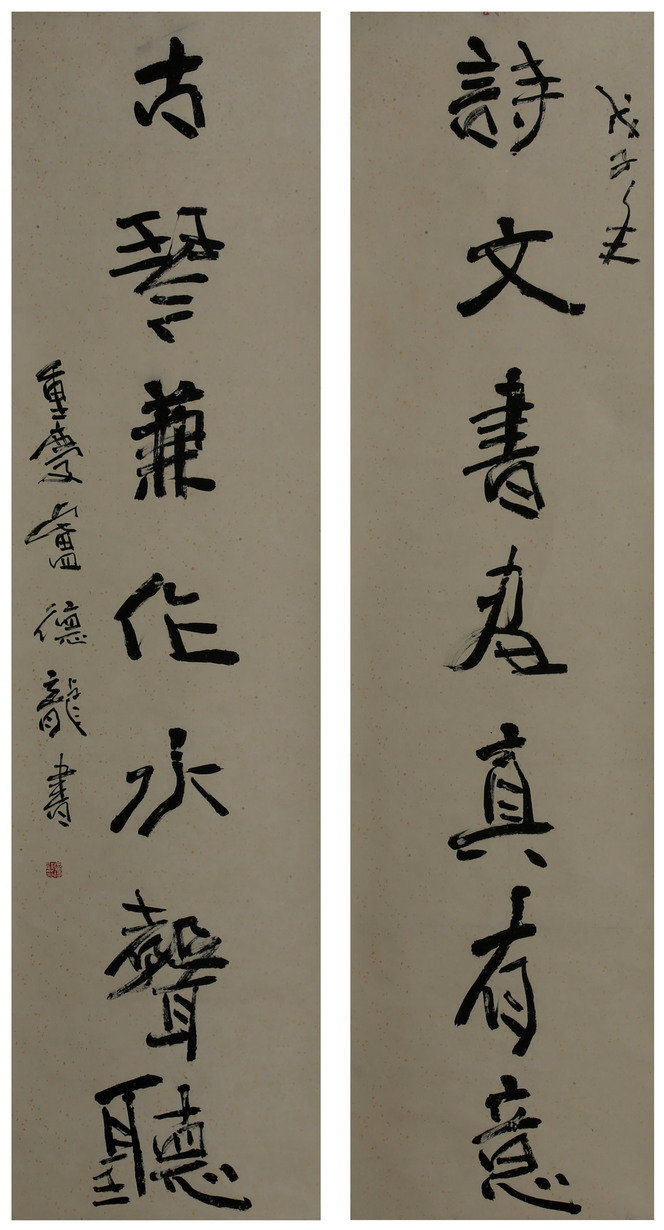 戊子冬
詩文書畫真有意
古琴兼作水聲聽
重慶 德龍書